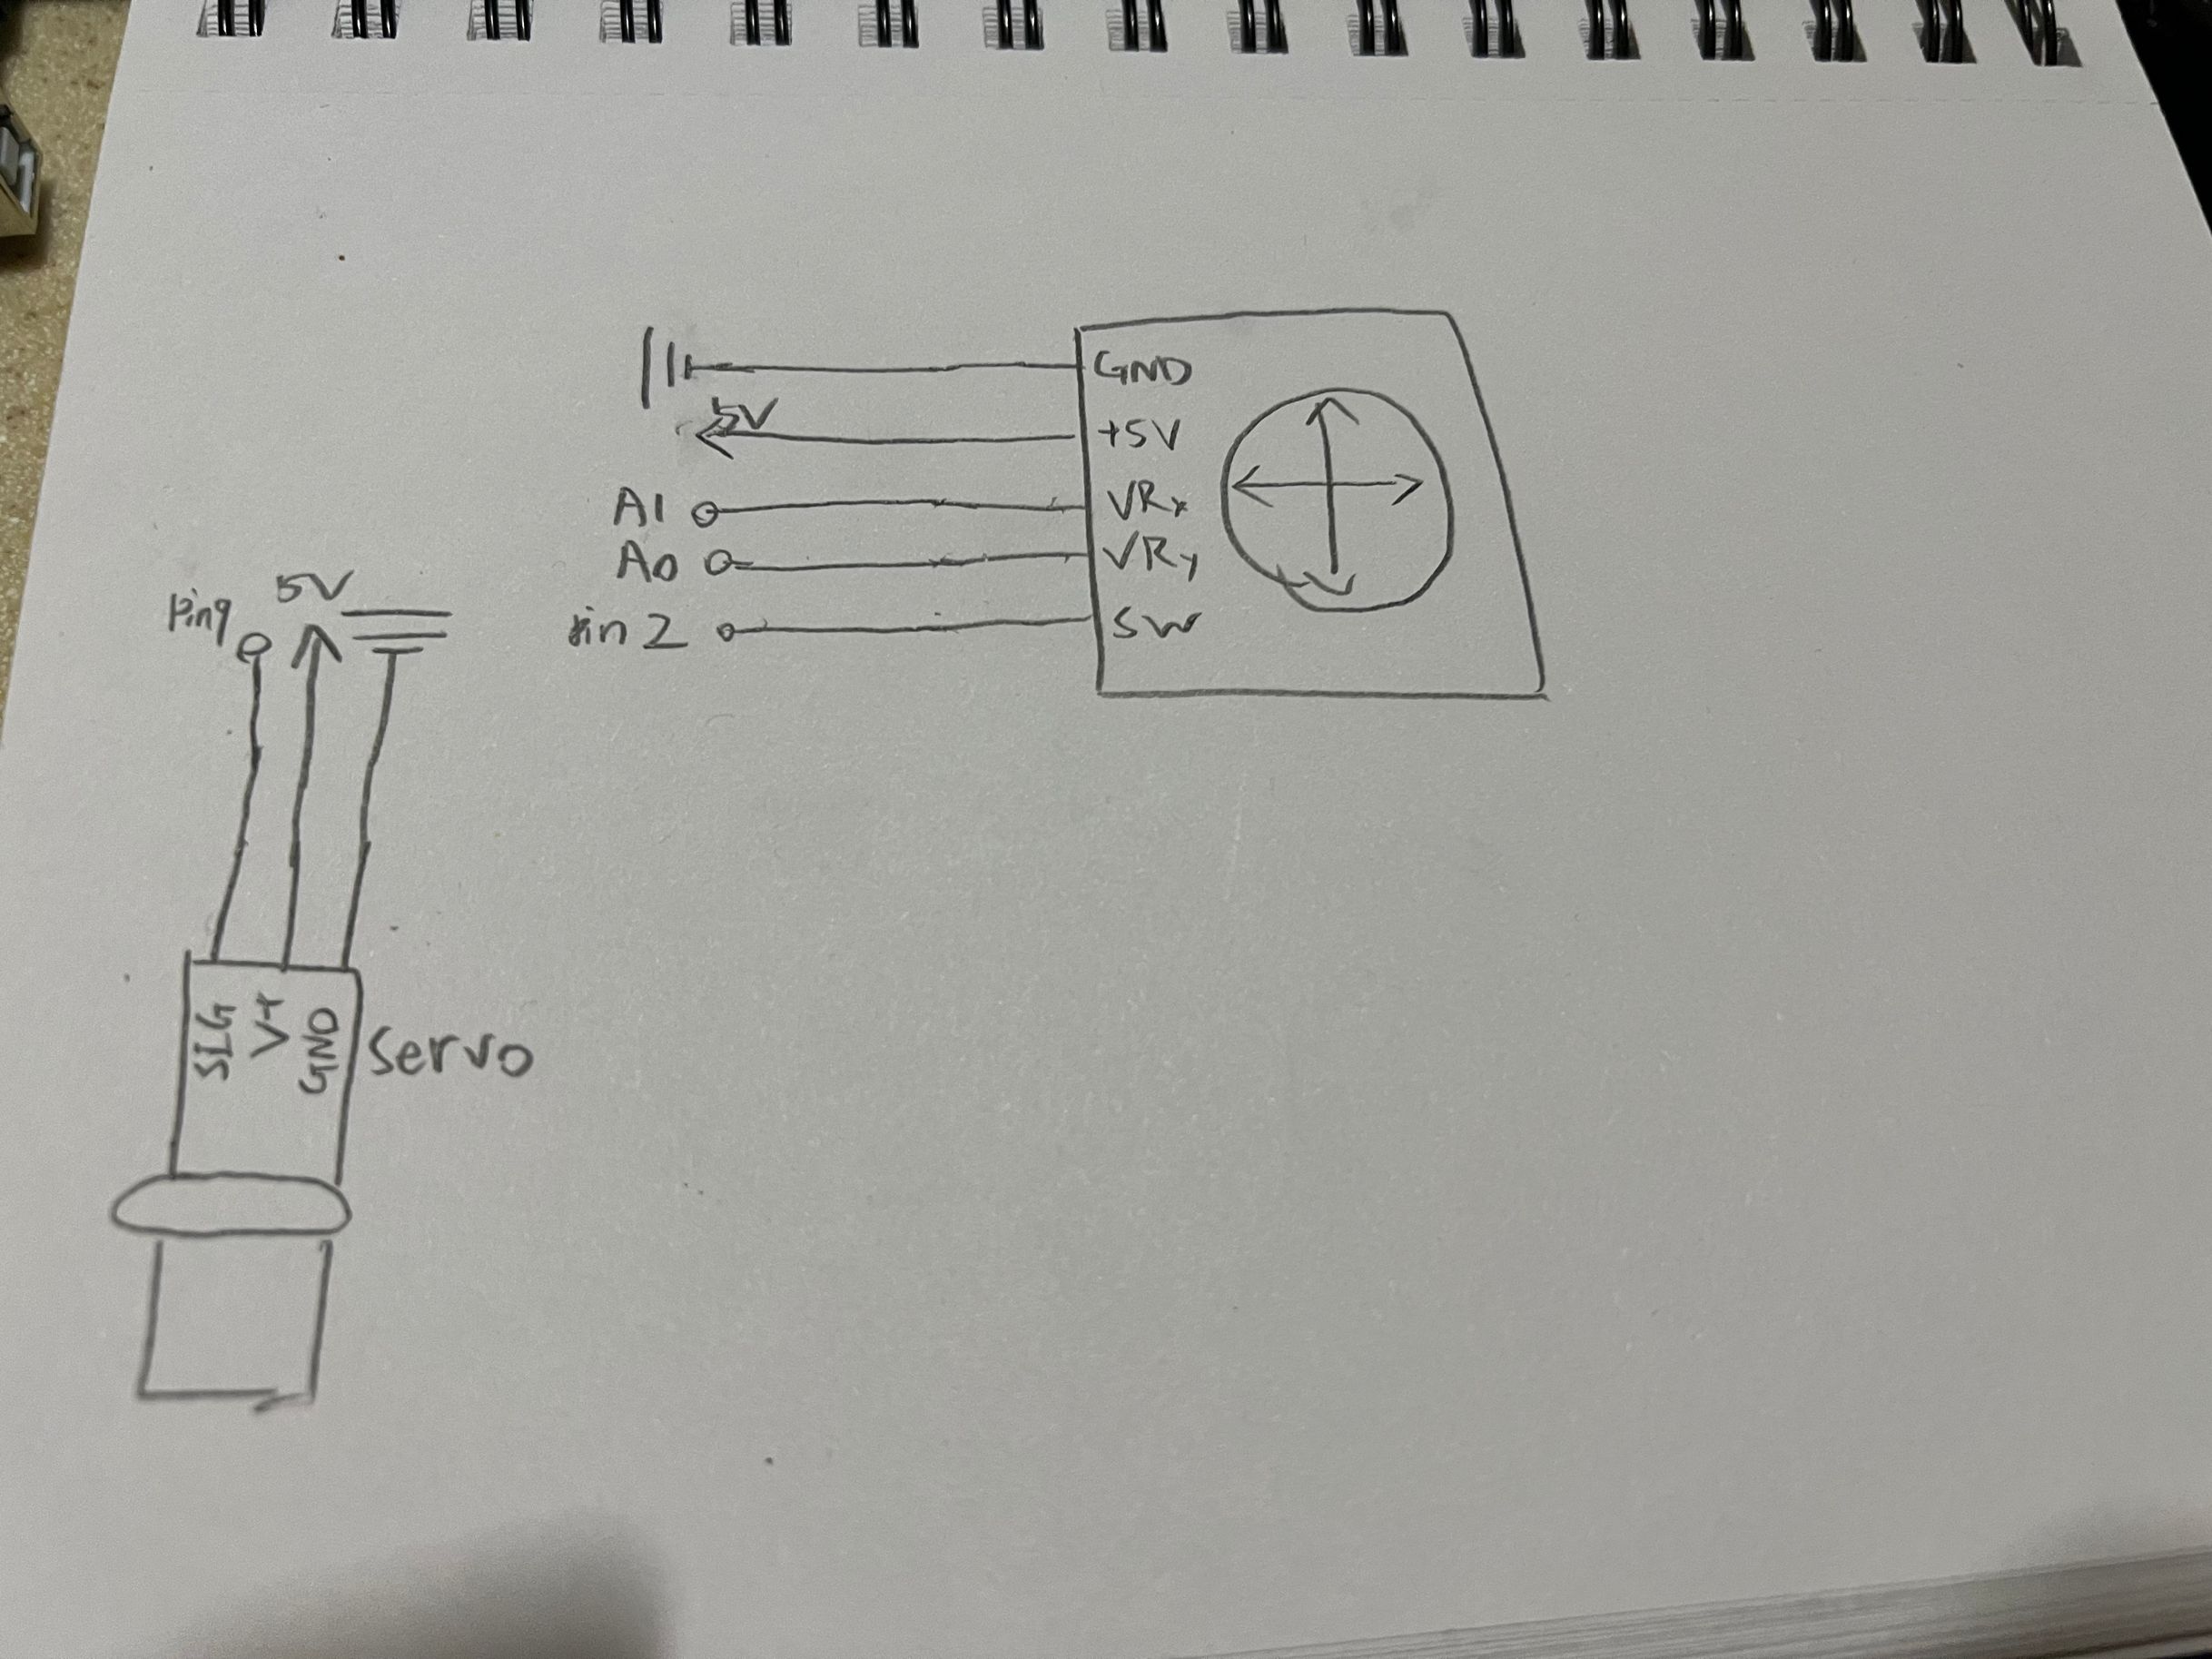 GND
5V
+5V
A1
VRx
A0
VRy
pin 2
SW
5V
pin9
SIG
V+
GND
Servo